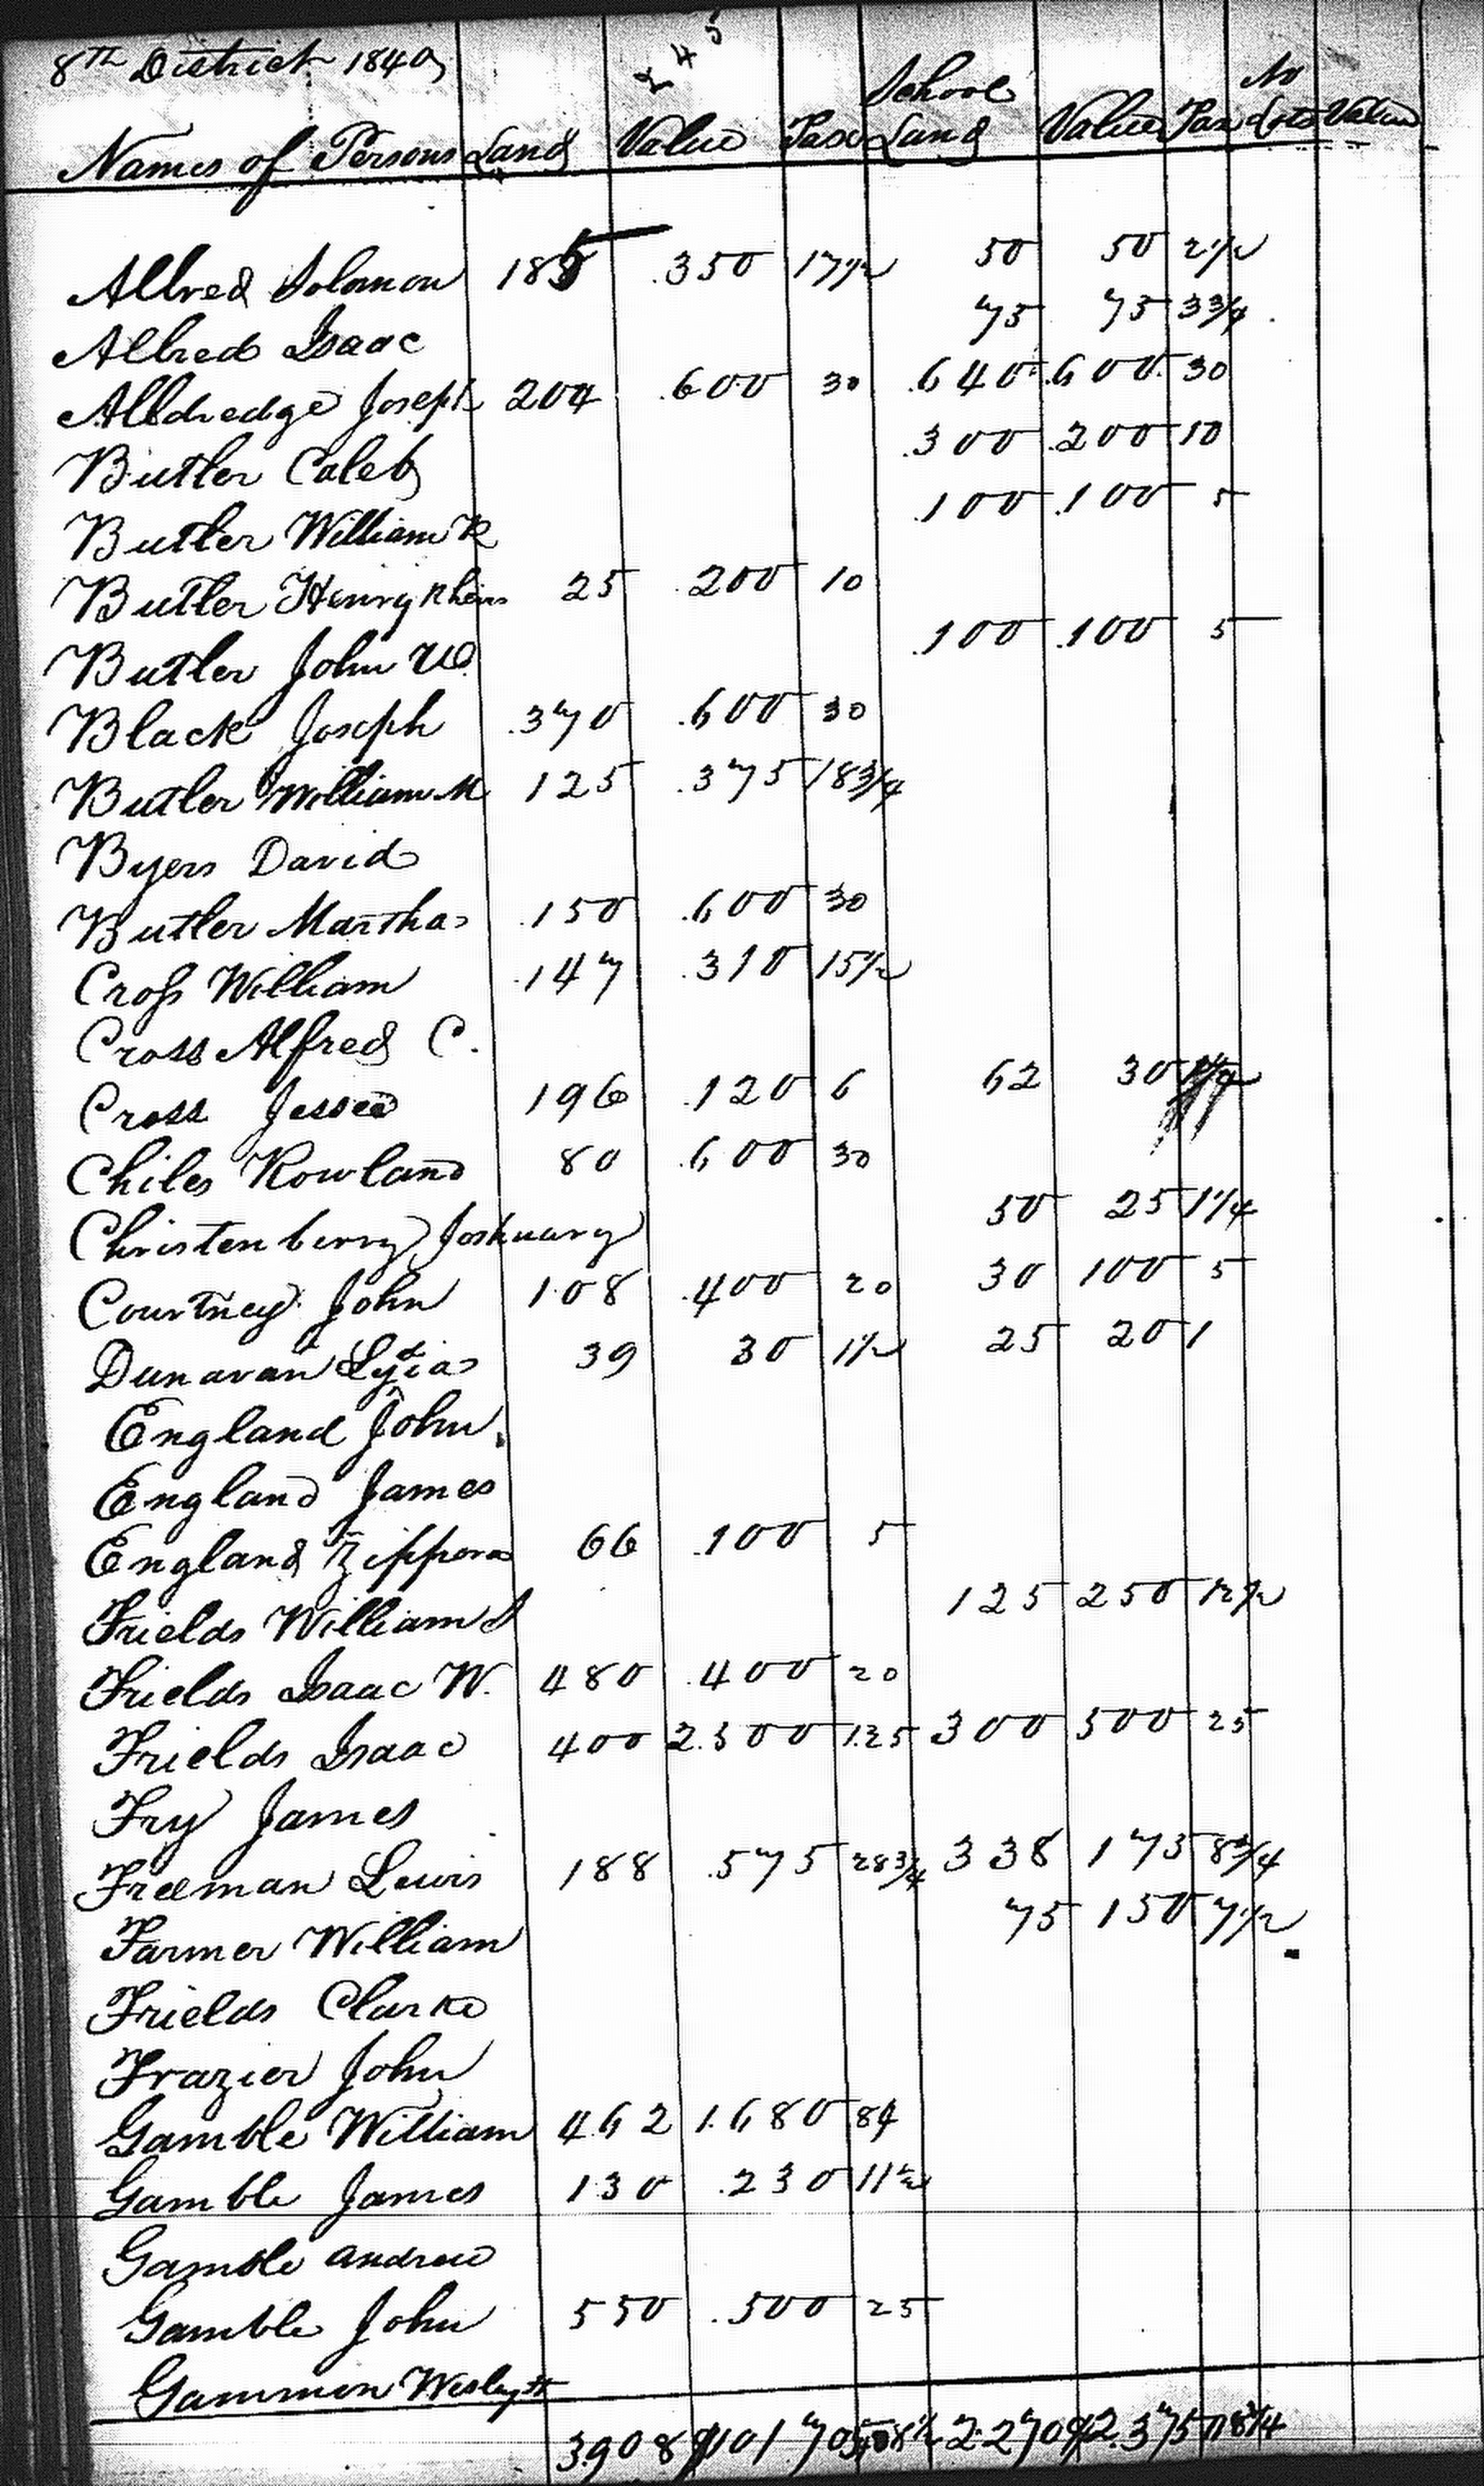 8TH District 1840
245
Names of Persons Land Value Tax School Land Value Tax No Lots Value
Allred Solomon 185 350 17½ 50 50 2½
Allred Isaac 75 75 3¾
Alldredge Joseph 204 600 30 640 600 30
Butler Caleb 300 200 10
Butler William R 100 100 5
Butler Henry R heirs 25 200 10
Butler John W. 100 100 5
Black Joseph 370 600 30
Butler William M 125 375 18¾
Byers David
Butler Martha 150 600 30
Cross William 147 310 15½
Cross Alfred C.
Cross Jessee 196 120 6 62 30
Chiles Rowland 80 600 30
Christenberry Joshuary 50 25 1¼
Courtney John 108 400 20 30 100 5
Dunavan Lydia 39 30 1½ 25 20 1
England John
England James
England Zippora 66 100 5
Frields William S 125 250 12½
Frields Isaac W. 480 400 20
Frields Isaac 400 2.500 1.25 300 500 25
Fry James
Freeman Lewis 188 575 28¾ 338 175 8¾
Farmer William 75 150 7½
Frields Clarke
Frazier John
Gamble William 462 1.680 84
Gamble James 130 230 11½
Gamble Andrew
Gamble John 550 500 25
Gammon Wesley H
3.908 2.270 2.375